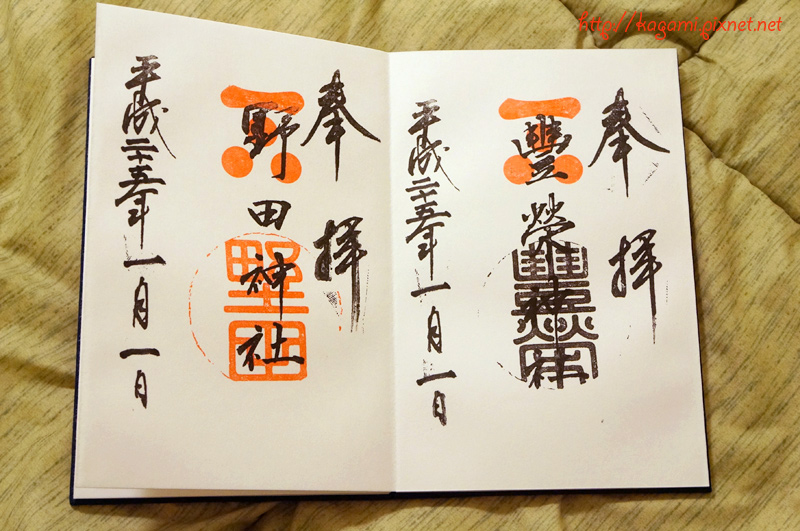 http://kagami.pixnet.net
奉拝
豊榮神社
平成二十五年一月一日
奉拝
野田神社
平成二十五年一月一日